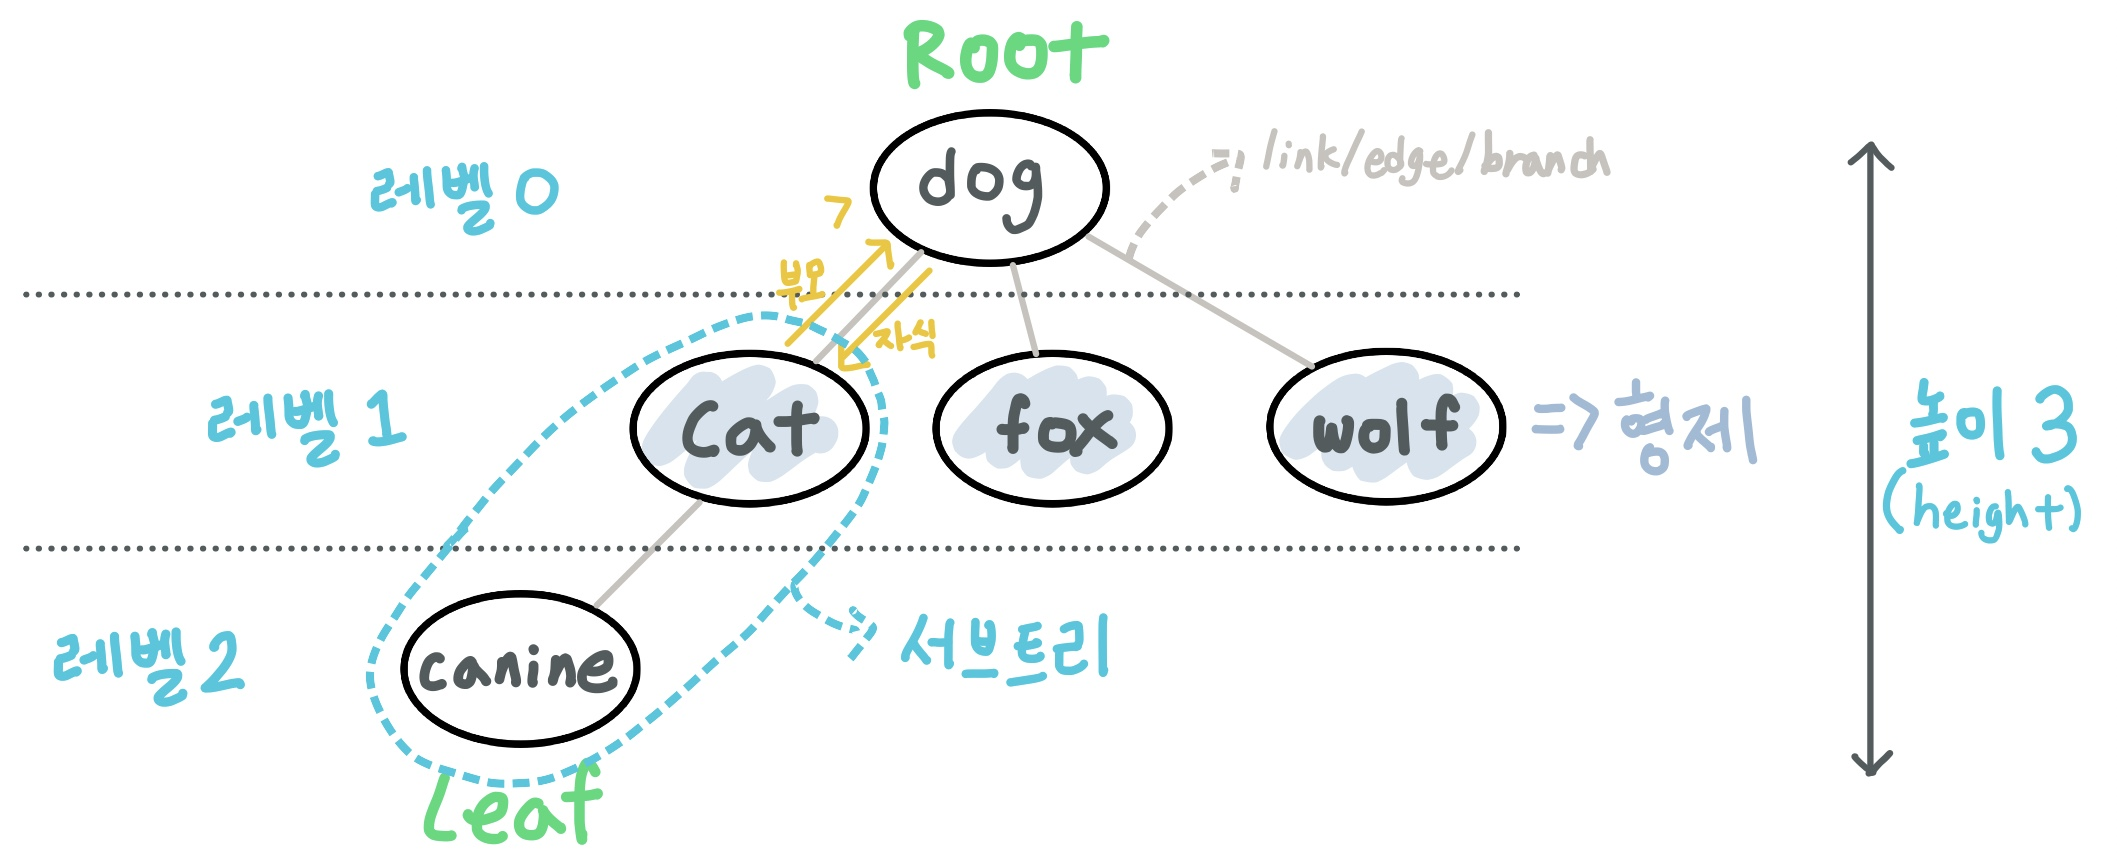 Root
레벨 0
dog
=> link/edge/branch
부모
자식
레벨 1
Cat
fox
wolf
=> 형제
높이 3
(height)
레벨 2
canine
서브트리
Leaf